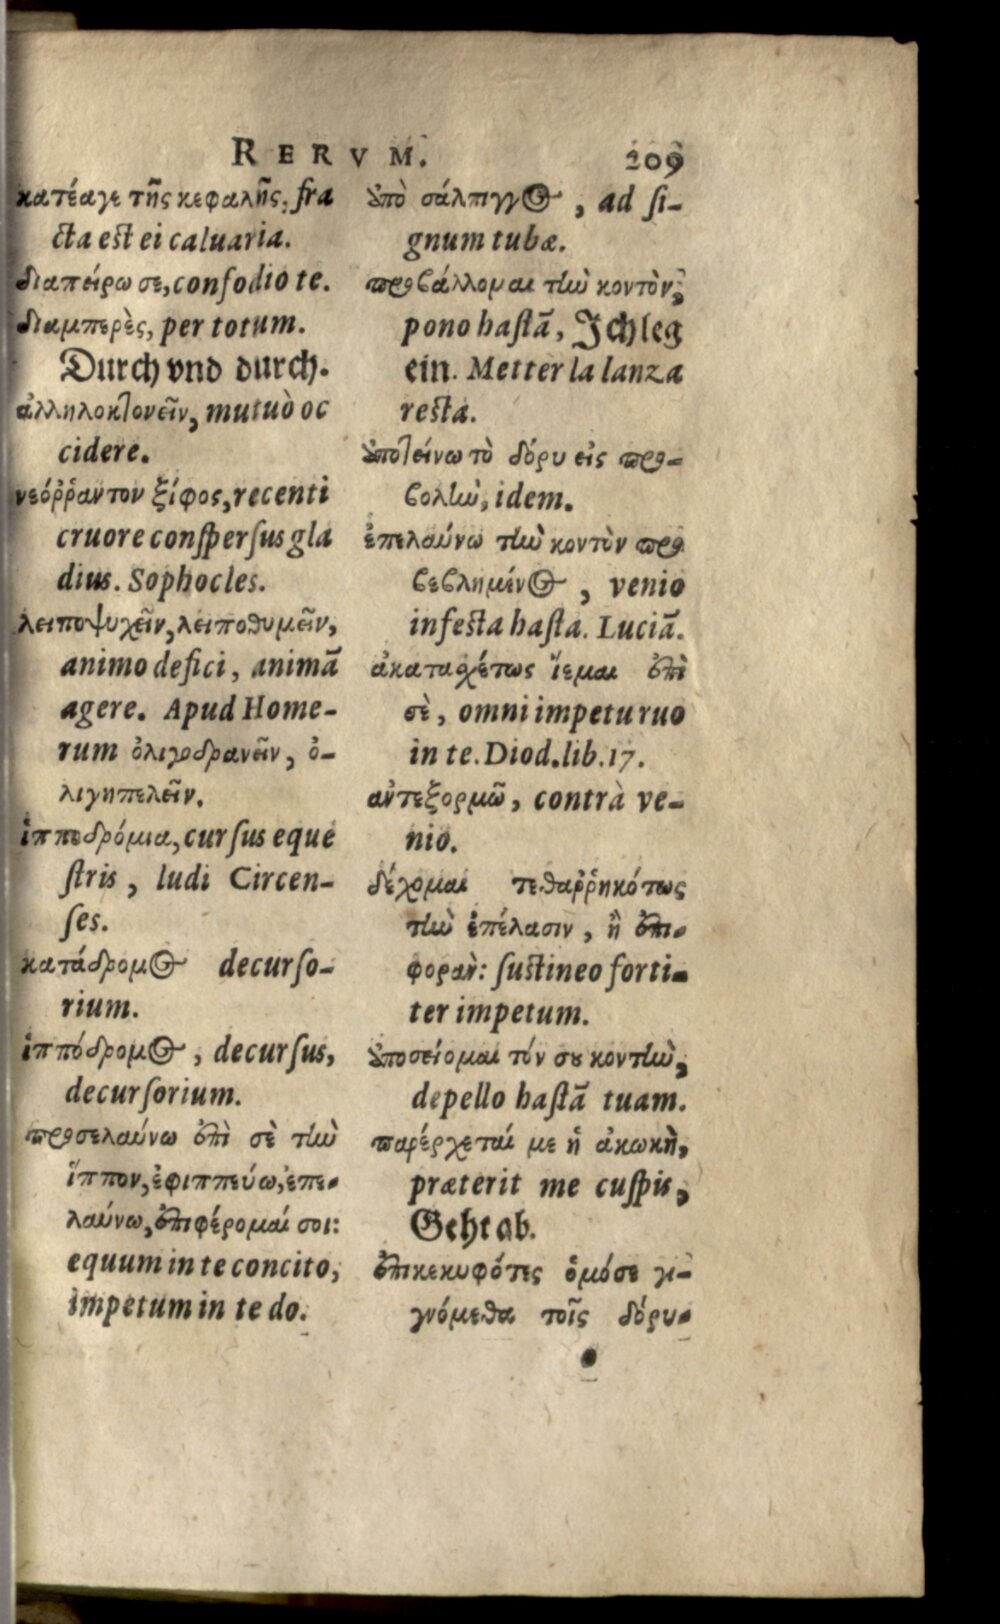 RERVM. 209
κατέαγε τῆς κεφαλῆς, fra
cta est ei caluaria.
διαπείρω σε, confodio te.
διαμπερὲς, per totum.
Durch vnd durch.
ἀλληλοκτονεῖν, mutuò oc
cidere.
νεόῤῥαντον ξίφος, recenti
cruore conspersus gla
dius. Sophocles.
λειποψυχεῖν, λειποθυμεῖν,
animo defici, animã
agere. Apud Home-
rum ὀλιγοδρανεῖν, ὀ-
λιγηπελεῖν.
ἱπποδρόμια, cursus eque
stris, ludi Circen-
ses.
κατάδρομος decurso-
rium.
ἱππόδρομος, decursus,
decursorium.
προσελαύνω ἐπὶ σὲ τὴν
ἵππον, ἐφιππεύω, ἐπε-
λαύνω, ἐπιφέρομαί σοι:
equum in te concito,
impetum in te do.
ὑπὸ σάλπιγγος, ad si-
gnum tubæ.
προβάλλομαι τὴν κοντὸν,
pono hastã, Ich leg
ein. Metter la lanza
resta.
ὑποτείνω τὸ δόρυ εἰς προ-
βολὴν, idem.
ἐπελαύνω τὴν κοντὸν προ
βεβλημένος, venio
infesta hasta. Luciã.
ἀκατασχέτως ἵεμαι ἐπὶ
σὲ, omni impetu ruo
in te. Diod. lib. 17.
ἀντεξορμῶ, contrà ve-
nio.
δέχομαι τεθαῤῥηκότως
τὴν ἐπέλασιν, ἢ ἐπι-
φορὰν: sustineo forti-
ter impetum.
ὑποσείομαι τόν σου κοντὴν,
depello hastã tuam.
παρέρχεταί με ἡ ἀκωκὴ,
præterit me cuspis,
Geht ab.
ἐπικεκυφότες ὁμόσε γι-
γνόμεθα τοῖς δόρυ-